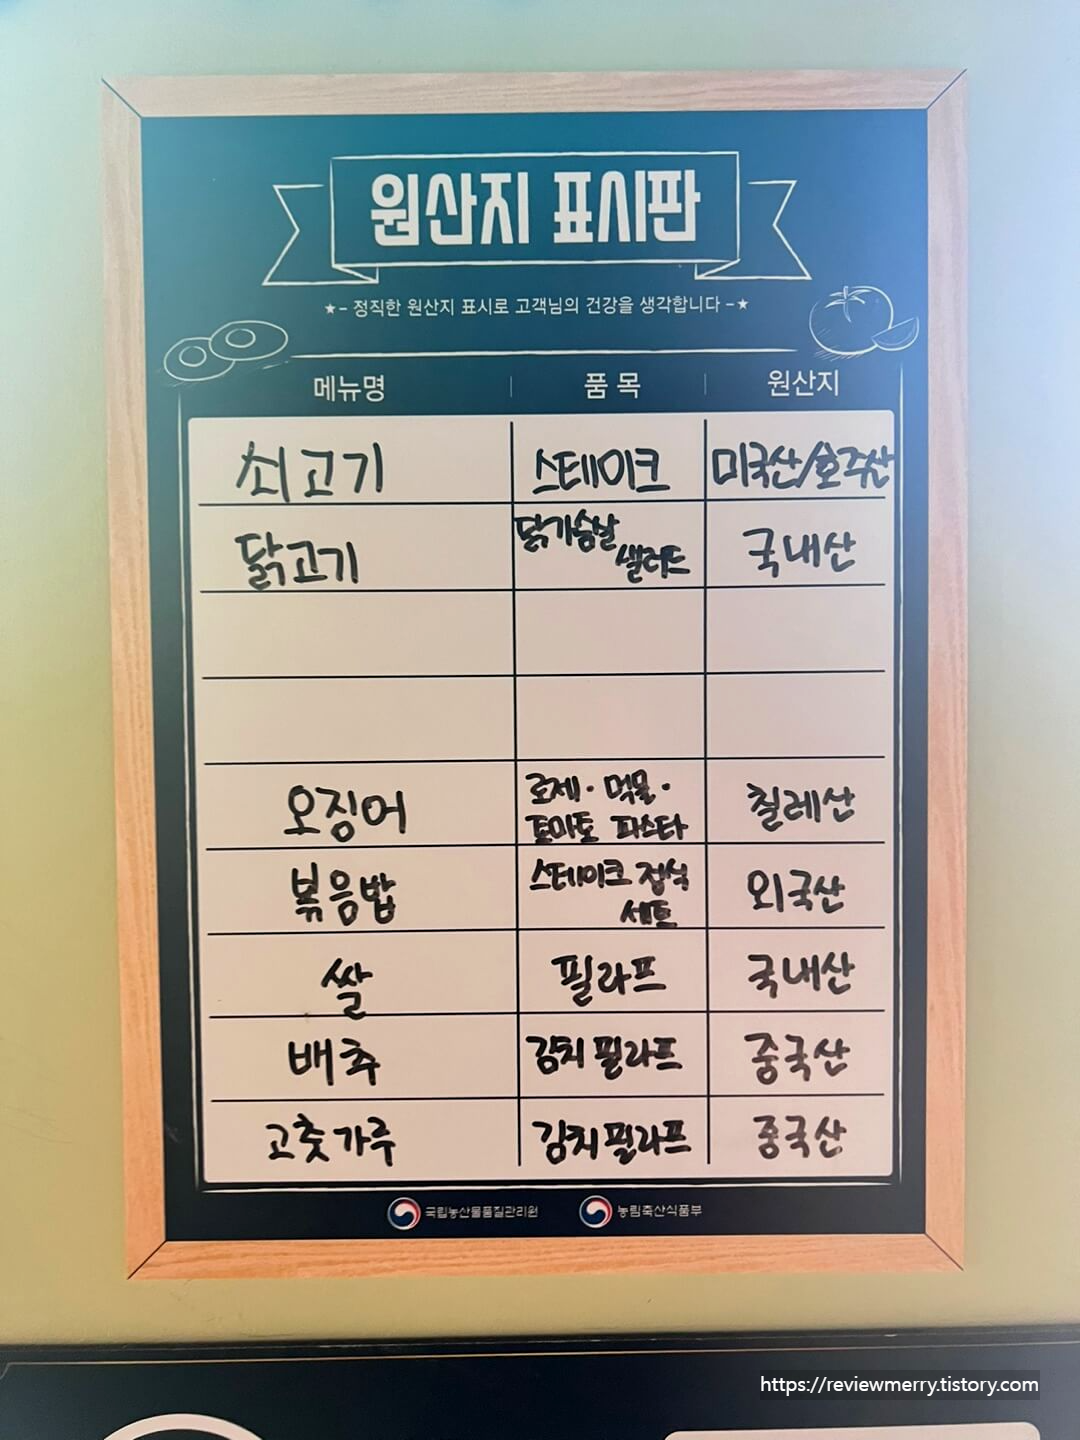 원산지 표시판
★- 정직한 원산지 표시로 고객님의 건강을 생각합니다 -★
메뉴명 품 목 원산지
쇠고기 스테이크 미국산/호주산
닭고기 닭가슴살 샐러드 국내산
오징어 로제·먹물· 토마토 파스타 칠레산
볶음밥 스테이크 정식 세트 외국산
쌀 필라프 국내산
배추 김치 필라프 중국산
고춧가루 김치 필라프 중국산
국립농산물품질관리원 농림축산식품부
https://reviewmerry.tistory.com